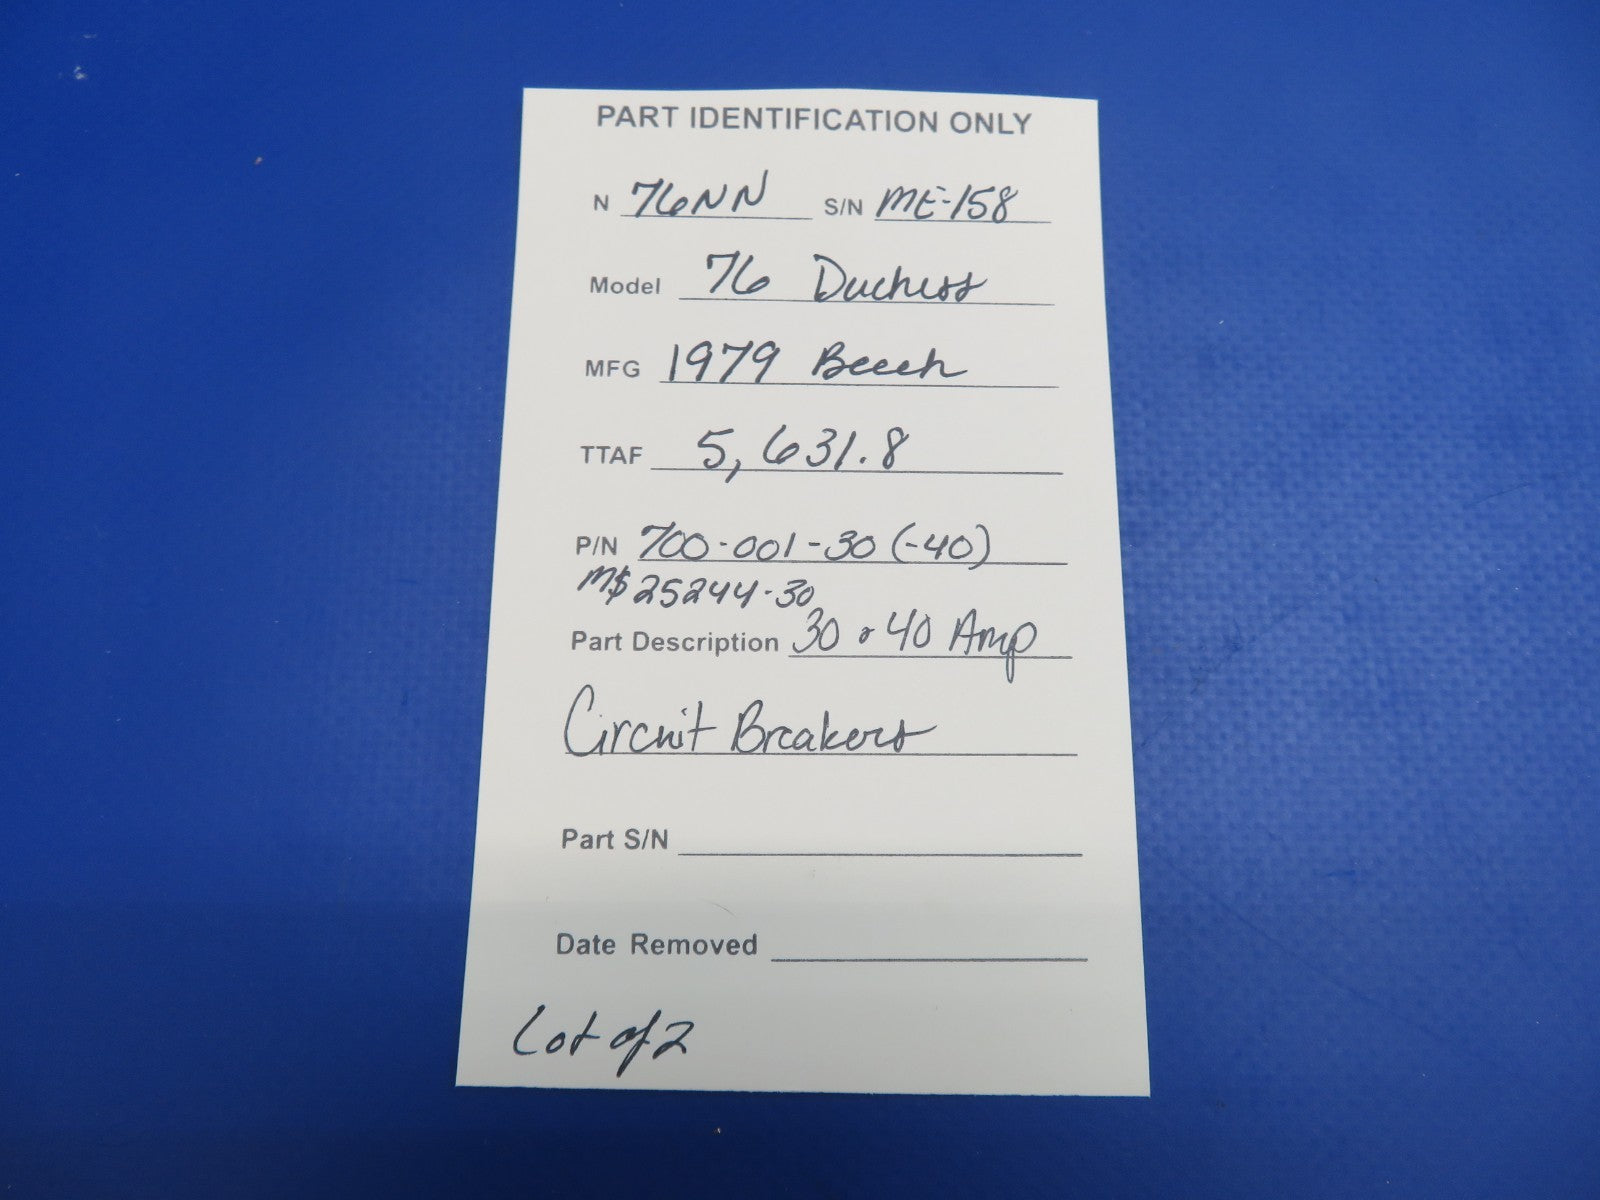 PART IDENTIFICATION ONLY
N 76NN S/N ME-158
Model 76 Duchess
MFG 1979 Beech
TTAF 5,631.8
P/N 700-001-30 (-40)
MS25244-30
Part Description 30 & 40 Amp
Circuit Breakers
Part S/N
Date Removed
Lot of 2